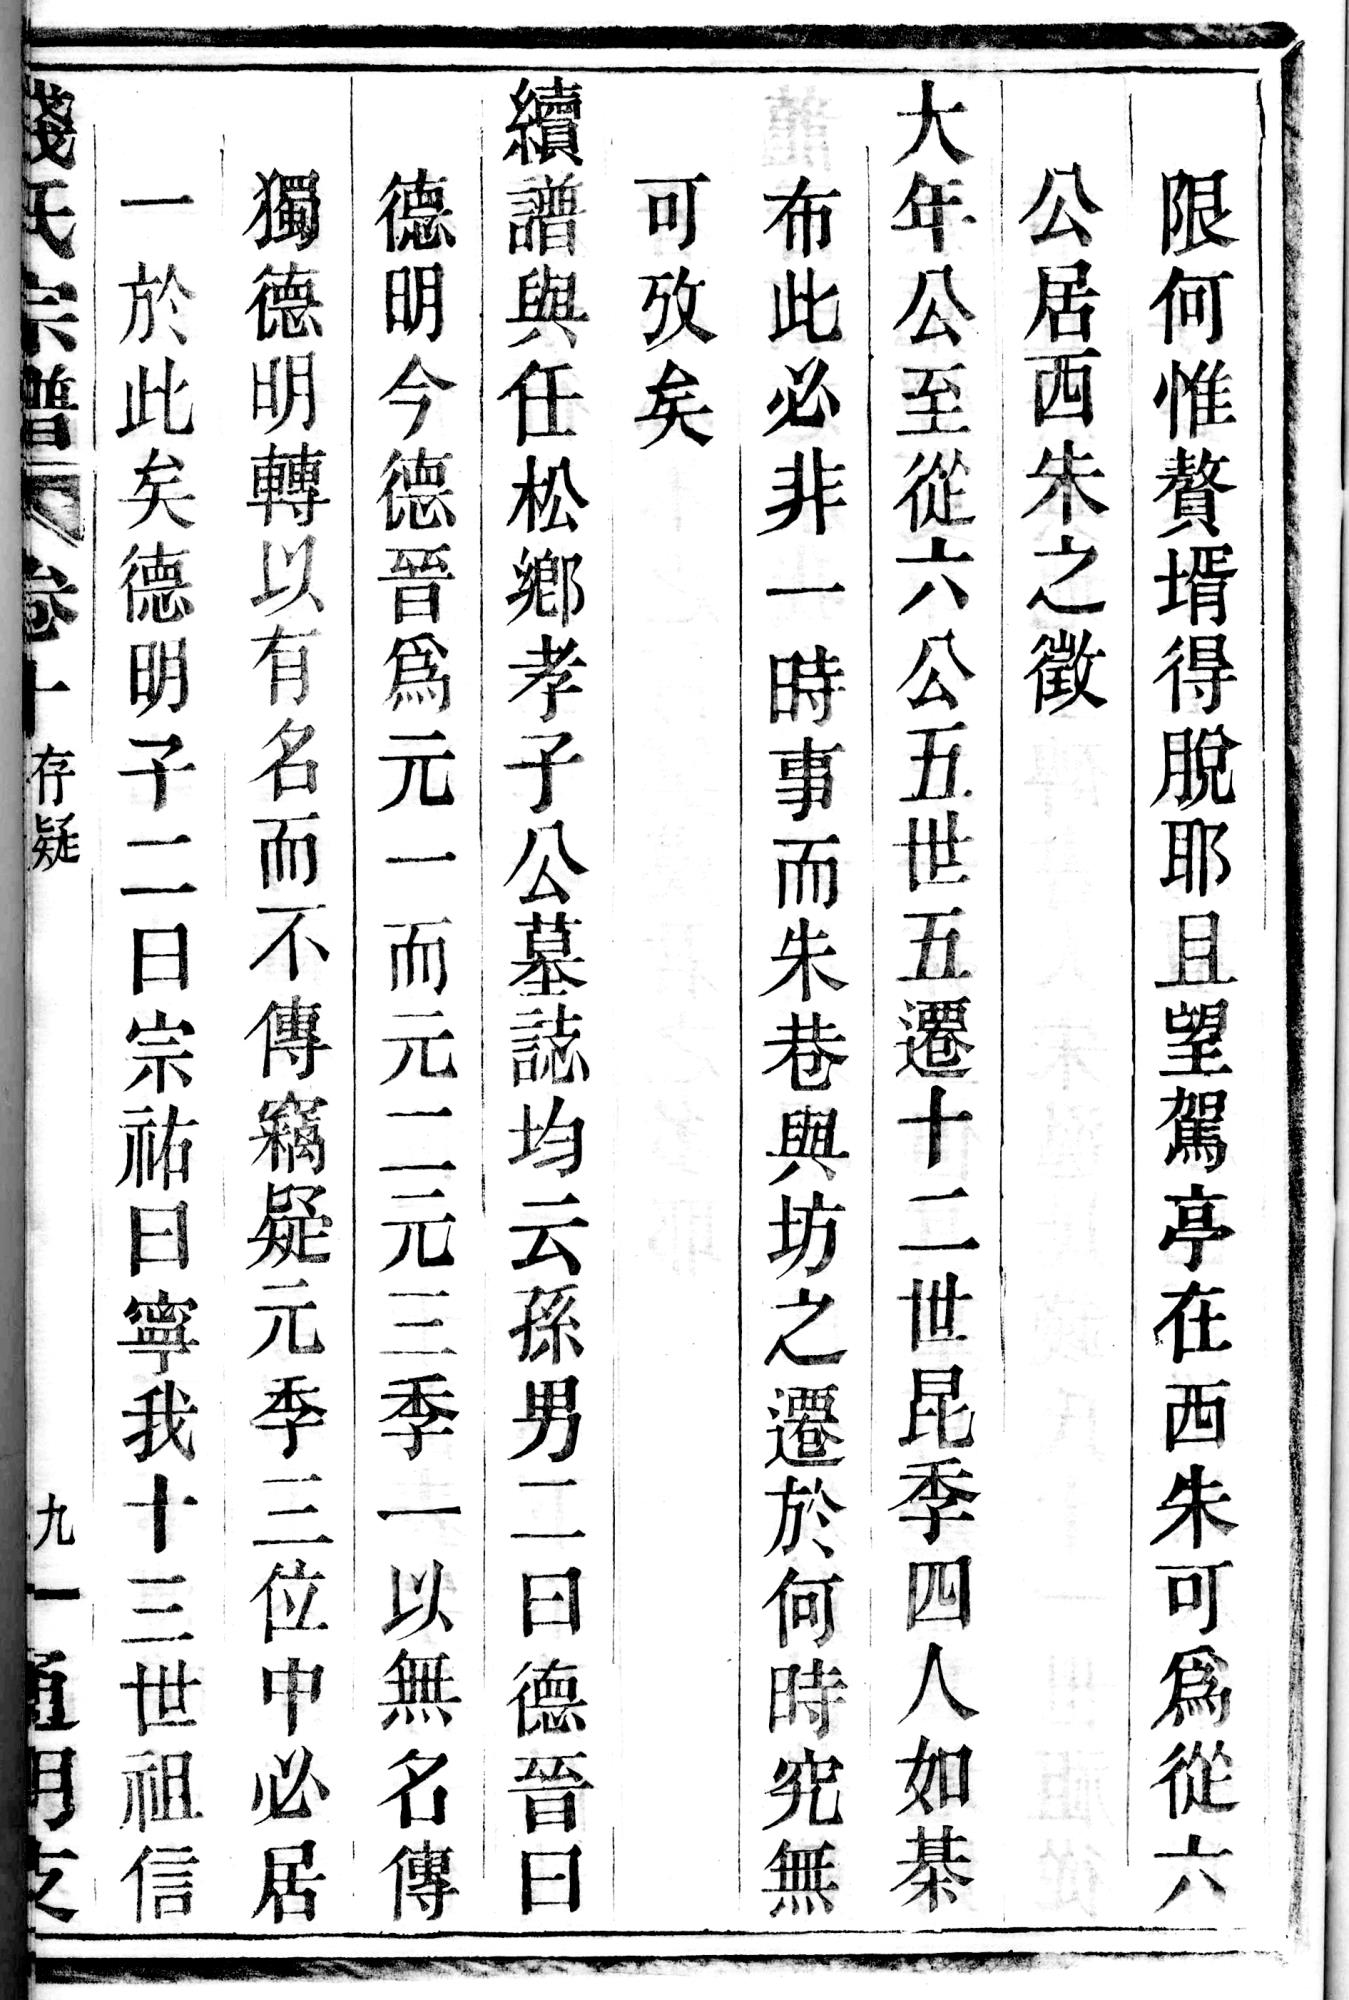 限何惟贅壻得脫耶且望駕亭在西朱可爲從六
公居西朱之徵
大年公至從六公五世五遷十二世昆季四人如棊
布此必非一時事而朱巷與坊之遷於何時究無
可攷矣
續譜與任松鄉孝子公墓誌均云孫男二曰德晉曰
德明今德晉爲元一而元二元三季一以無名傳
獨德明轉以有名而不傳竊疑元季三位中必居
一於此矣德明子二曰宗祐曰寧我十三世祖信
錢氏宗譜 卷十 存疑 九 通明支